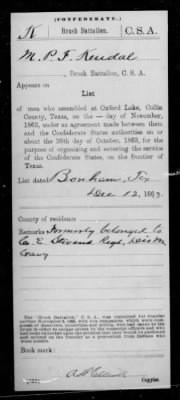 (CONFEDERATE.)
K Brush Battalion, C. S. A.
M. P. F. Kendal
, Brush Battalion, C. S. A.
Appears on
List
of men who assembled at Oxford Lake, Collin
County, Texas, on the — day of November,
1863, under an agreement made between them
and the Confederate States authorities on or
about the 26th day of October, 1863, for the
purpose of organizing and entering the service
of the Confederate States, on the frontier of
Texas.
List dated Bonham, Tex
Dec 12, 1863.
County of residence
Remarks Formerly belonged to
Co. E. Regt,
Cavy
The "Brush Battalion," C. S. A., was organized for frontier
service November 6, 1863, with two companies, which were com-
posed of deserters, conscripts and others, who had taken to the
brush in order to escape arrest by the conscript officers and who
had been promised that they would be pardoned or unpunished
and be retained on the frontier as a protection from Indians while
Book mark:
Copyist.